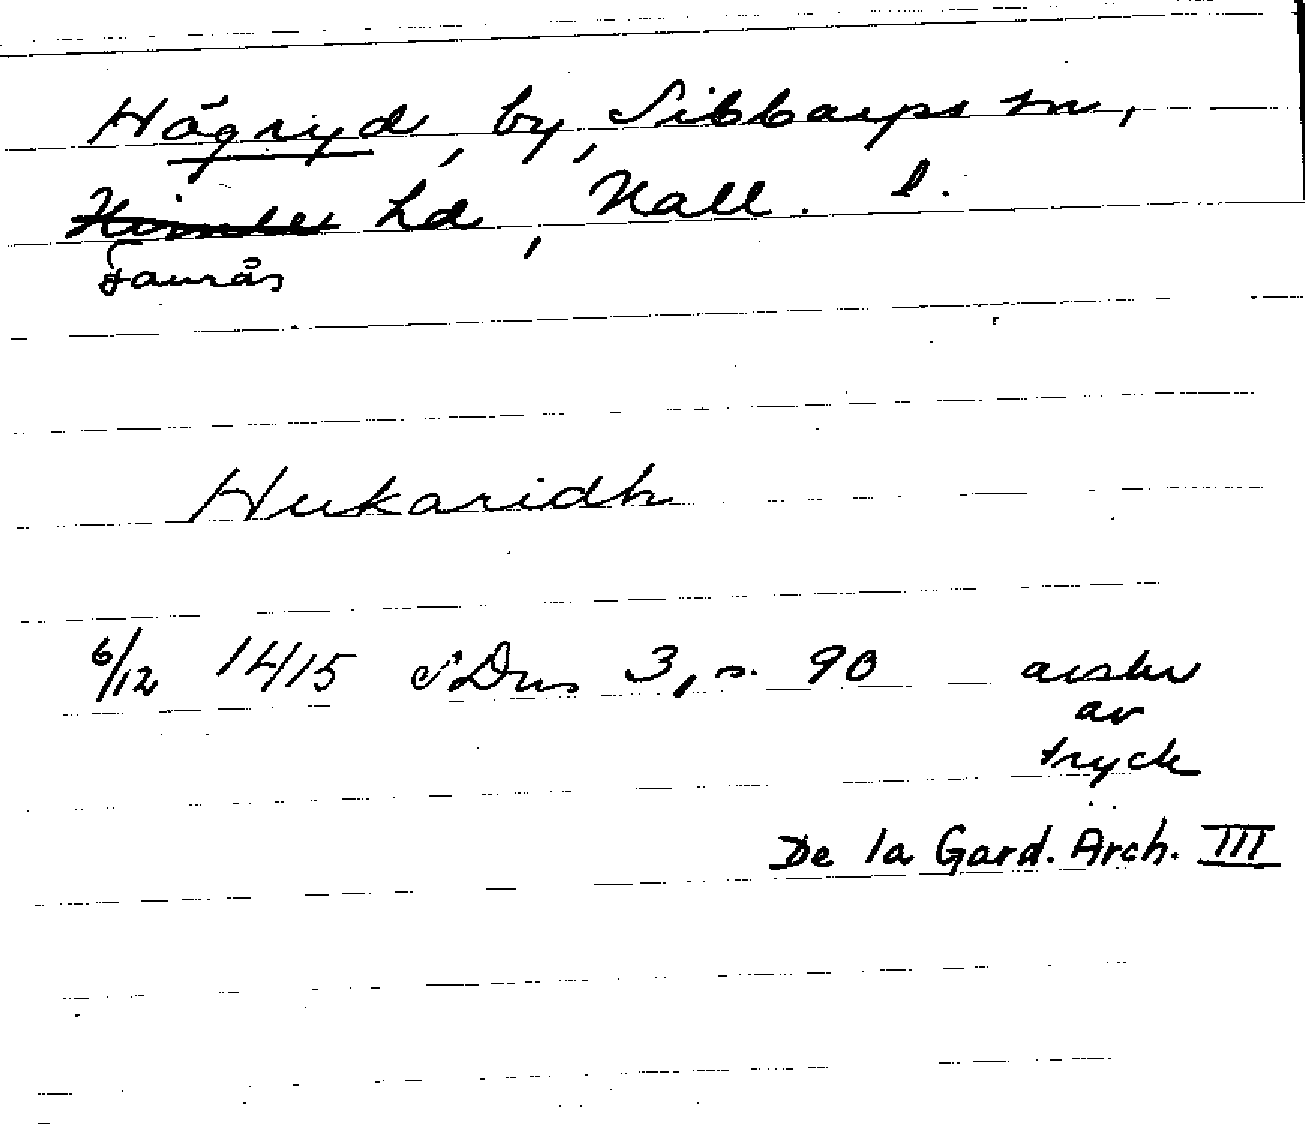 Högryd, by, Sibbarps sn,
Himle hd, Hall. l.
Faurås
Hukaridh
6/12 1415 SDns 3, s. 90 avskr
av
tryck
De la Gard. Arch. III